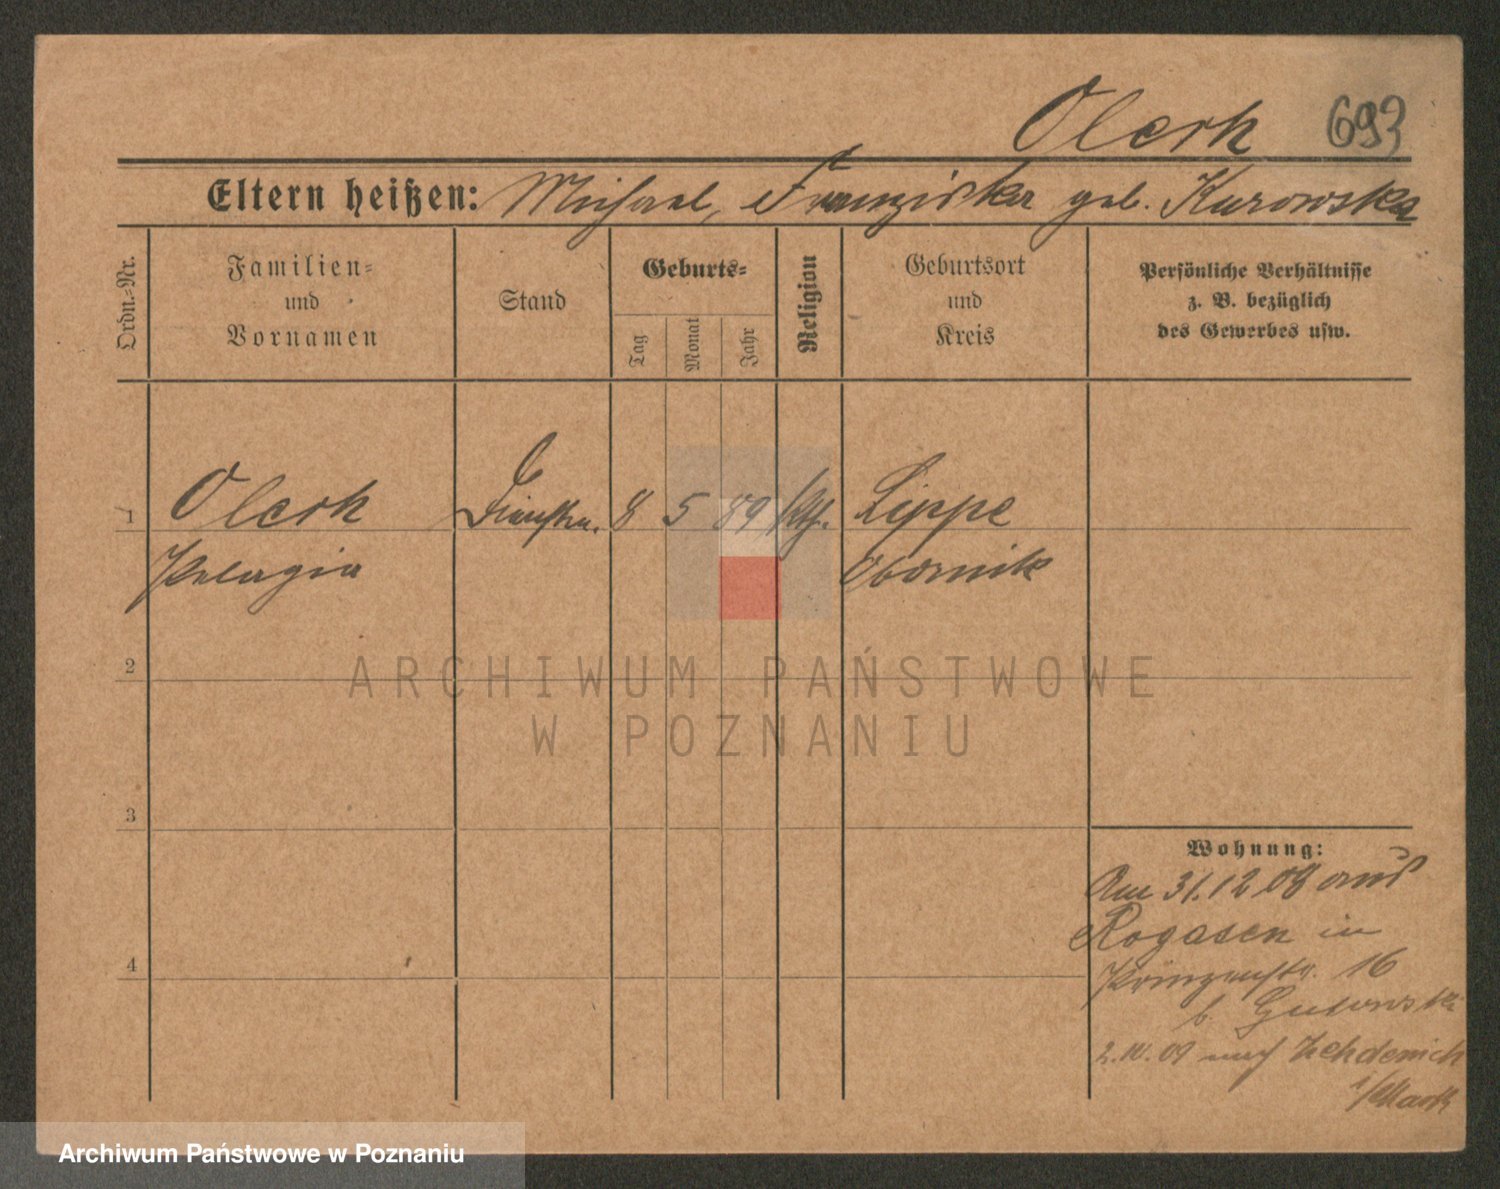 Olerk 693
Eltern heißen: Michael, Franziska geb. Kurowska
Ordn.=Nr.
Familien=
und
Vornamen
Stand
Geburts=
Tag
Monat
Jahr
Religion
Geburtsort
und
Kreis
Persönliche Verhältnisse
z. B. bezüglich
des Gewerbes usw.
1 Olerk 8 5 89 kth. Lippe
Pelagia Obornik
2
3
4
Wohnung:
Am 31.12 08 aus
Rogasen in
Prinzenstr. 16
b. Gutowski
2.IV.09 nach Zehdenick
i/Mark
ARCHIWUM PAŃSTWOWE
W POZNANIU
Archiwum Państwowe w Poznaniu